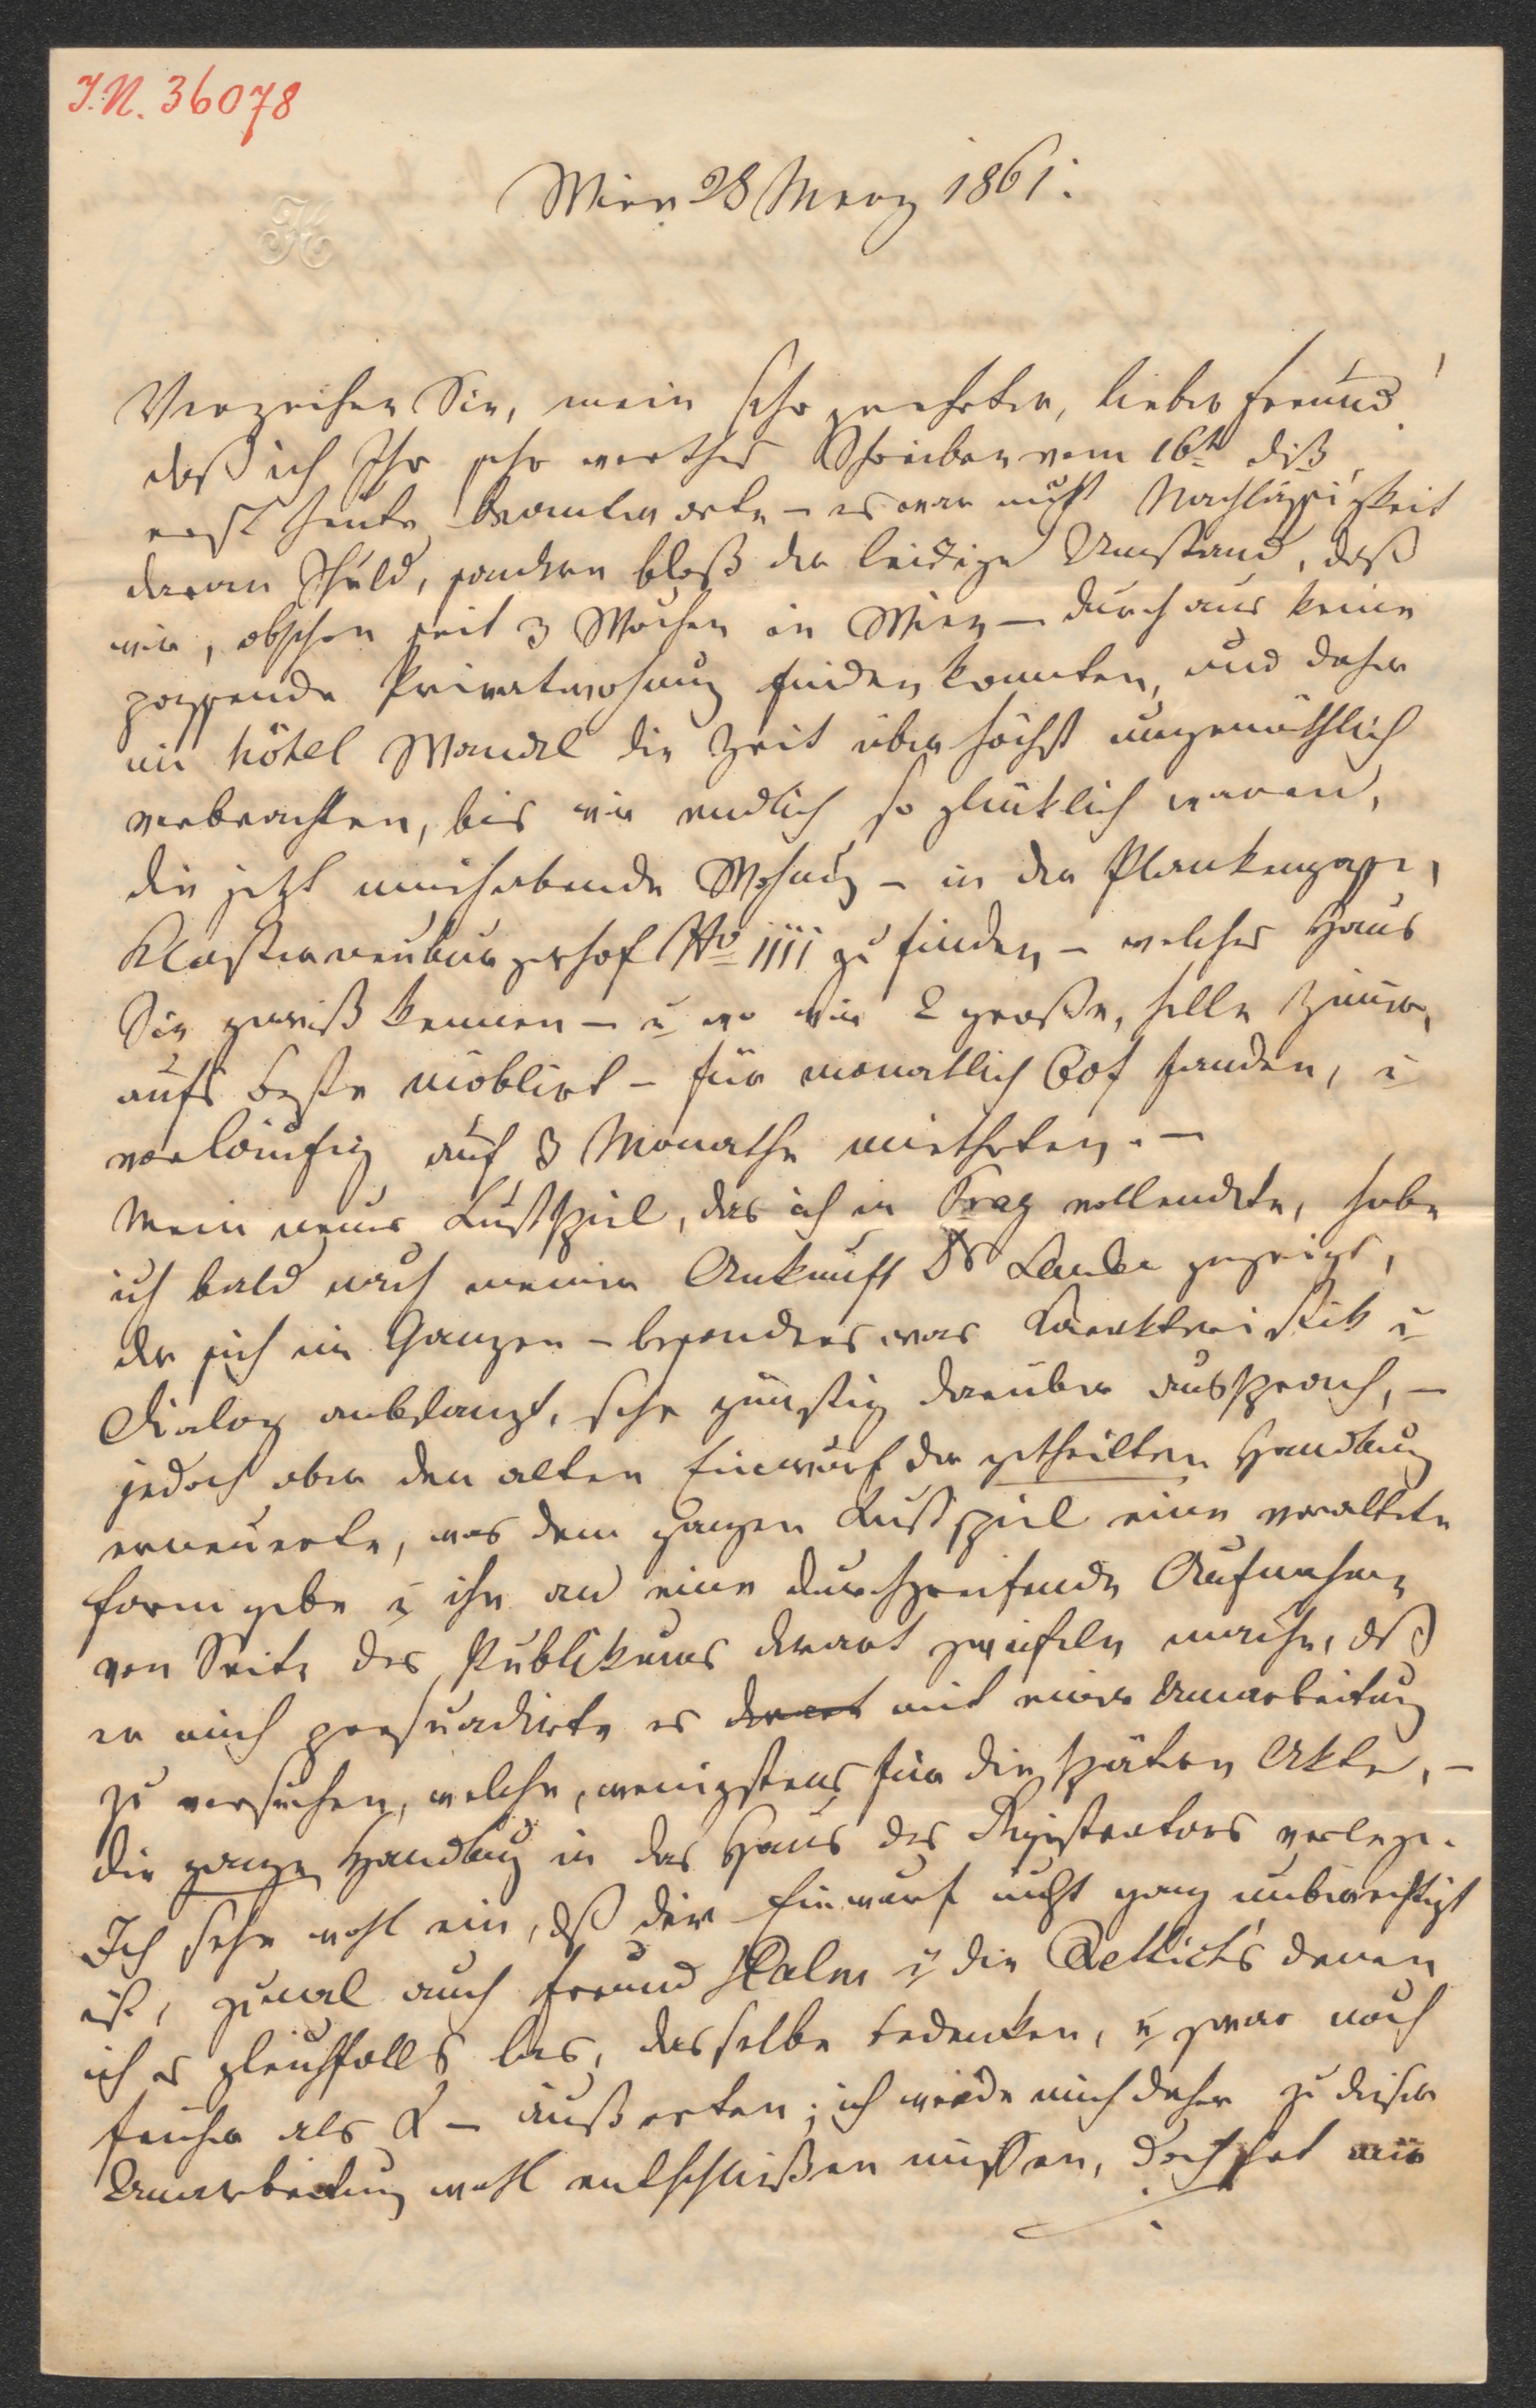 J.N. 36078
Wien 28 Merz 1861.
Verzeihen Sie, mein sehr geehrter, lieber Freund!
daß ich Ihr sehr werthes Schreiben vom 16t diß,
erst heute beantworte – es war nicht Nachläßigkeit
daran Schuld, sondern bloß der leidige Umstand, daß
wir, obschon seit 3 Wochen in Wien – durchaus keine
passende Privatwohnung finden konnten, und daher
im hôtel Wandl die Zeit über höchst ungemüthlich
verbrachten, bis wir endlich so glücklich waren,
die jetzt innehabende Wohnung – in der Plankengasse,
Klosterneuburgerhof No 1111 zu finden – welches Haus
Sie gewiß kennen – u wo wir 2 große, helle Zimmer,
aufs beste möblirt – für monatlich 60f fanden, u
vorläufig auf 3 Monathe mietheten. –
Mein neues Lustspiel, das ich in Prag vollendete, habe
ich bald nach meiner Ankunft Dr Laube gezeigt,
der sich im Ganzen – besonders was Karakteristik u
Dialog anbelangt, sehr günstig darüber aussprach, –
jedoch aber den alten Einwurf der getheilten Handlung
erneuerte, was dem ganzen Lustspiel eine veraltete
Form gebe u ihn an eine durchgreifende Aufnahme
von Seite des Publikums derart zweifeln mache, dß
er mich persuadirte es derart mit einer Umarbeitung
zu versuchen, welche, wenigstens für die spätern Akte, –
die ganze Handlung in das Haus des Registrators verlege.
Ich sehe wohl ein, dß der Einwurf nicht ganz unberechtigt
ist, zumal auch Freund Halm u die Rettich's denen
ich es gleichfalls las, dasselbe bedenken, u zwar noch
früher als L – äußerten; ich werde mich daher zu dieser
Umarbeitung wohl entschließen müssen, doch hat mir